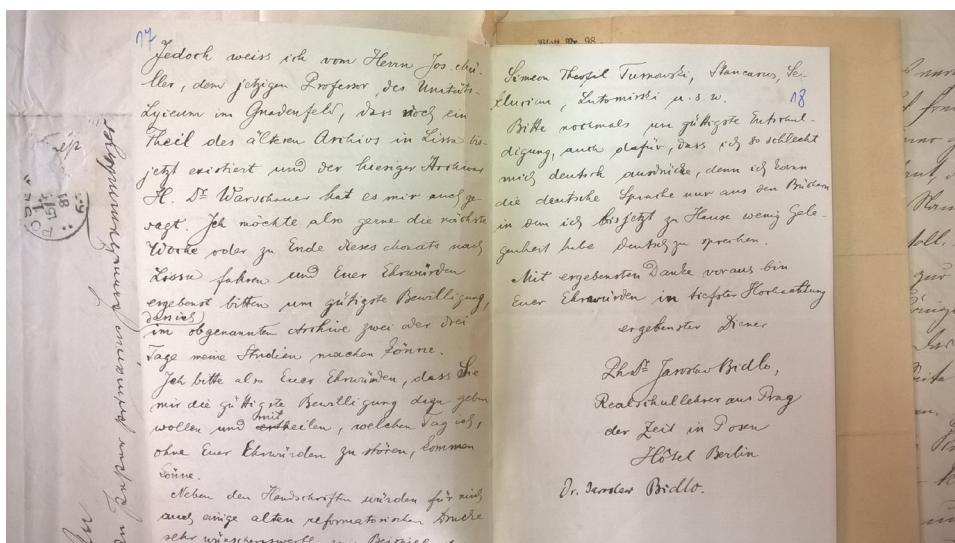 17
Jedoch weiss ich vom Herrn Jos. Mü-
ller, dem jetzigen Professor des Unitäts-
Lyceum im Gnadenfeld, dass noch ein
Theil des älteren Archivs in Lissa bis
jetzt existiert und der hiesiger Archivar
H. Dr Warschauer hat es mir auch ge-
sagt. Ich möchte also gerne die nächste
Woche oder zu Ende dieses Monats nach
Lissa fahren und Euer Ehrwürden
ergebenst bitten um gütigste Bewilligung,
dass ich
im obgenannten Archive zwei oder drei
Tage meine Studien machen könne.
Ich bitte also Euer Ehrwürden, dass Sie
mir die güttigste Bewilligung dazu geben
wollen und mittheilen, welchen Tag ich,
ohne Euer Ehrwürden zu stören, kommen
könne.
Neben den Handschriften würden für mich
auch einige alten reformatorischen Drucke
sehr wünschenswerth
Blatt Nr. 98
Simeon Theofil Turnowski, Stancarus, Se-
klucian, Lutomirski u. s. w.
18
Bitte nochmals um güttigste Entschul-
digung, auch dafür, dass ich so schlecht
mich deutsch ausdrücke, denn ich kann
die deutsche Sprache nur aus den Büchern
in dem ich bis jetzt zu Hause wenig Gele-
genheit habe deutsch zu sprechen.
Mit ergebensten Danke voraus bin
Euer Ehrwürden in tiefster Hochachtung
ergebenster Diener
Ph Dr Jaroslav Bidlo,
Realschullehrer aus Prag
der Zeit in Posen
Hôtel Berlin
Dr. Jaroslav Bidlo.